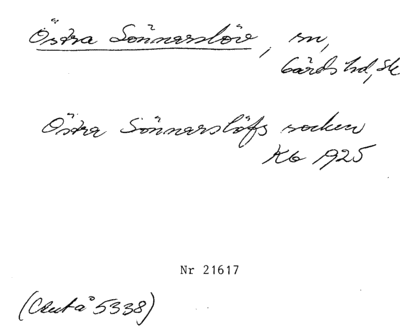 Östra Sönnarslöv, sn,
Gärds hd, Sk
Östra Sönnarslöfs socken
Kb 1925
Nr 21617
5338)